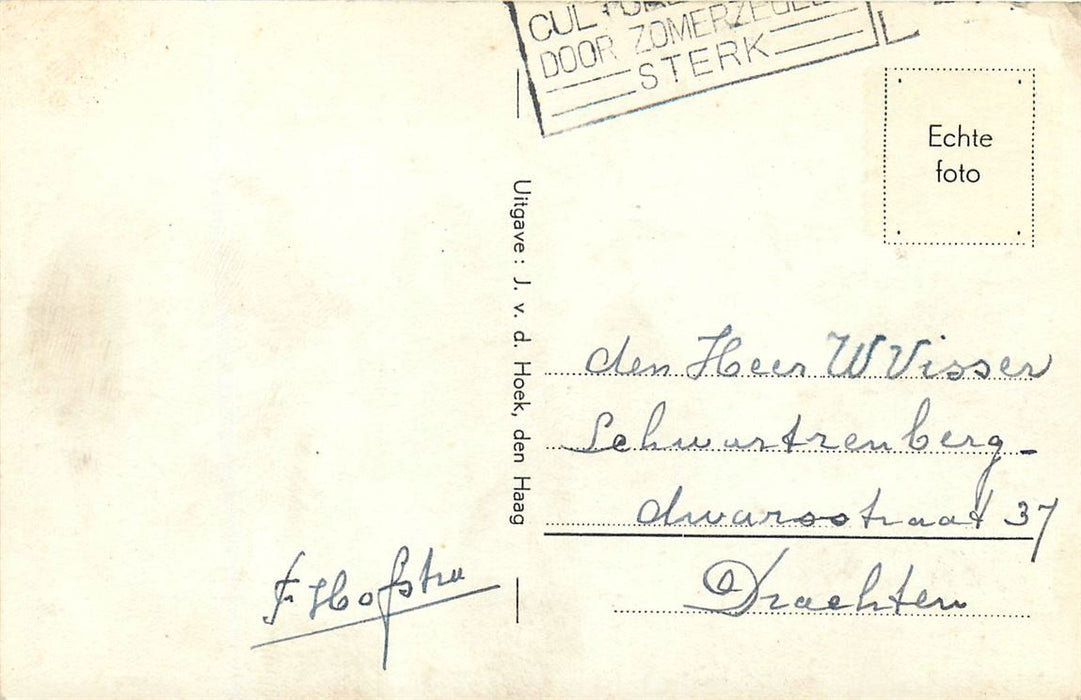 DOOR ZOMERZEGELS
STERK
Echte
foto
Uitgave: J. v. d. Hoek, den Haag
den Heer W Visser
Schwartzenberg-
dwarsstraat 37
Drachten
F Hofstra